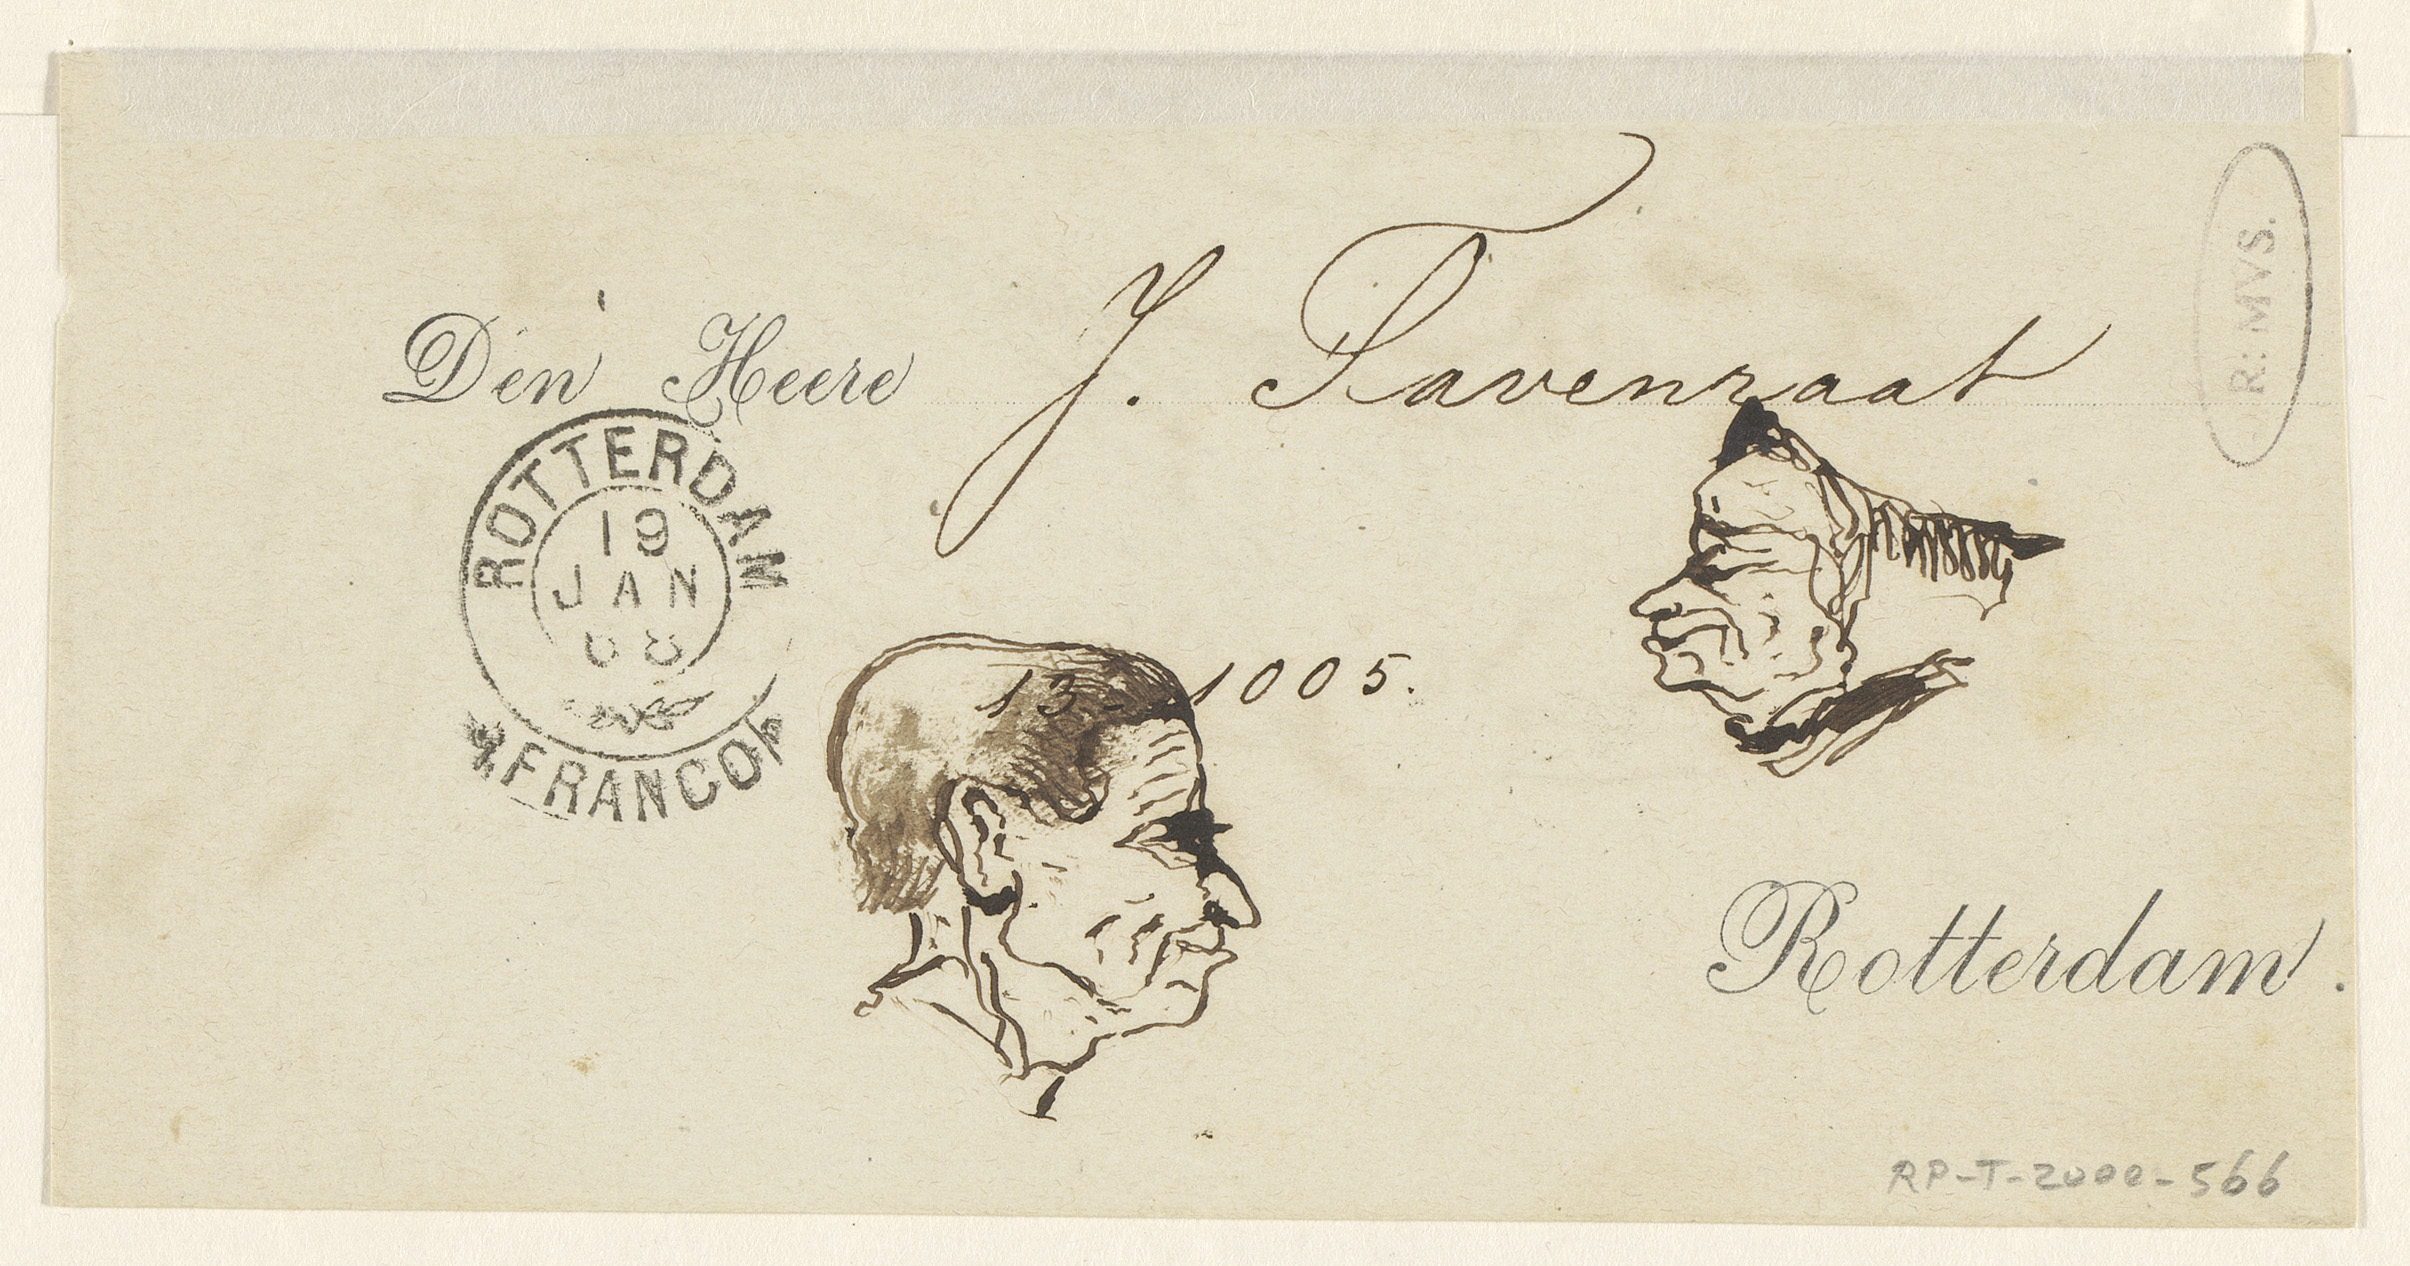 Den Heere J. Tavenraat
R: MVS.
ROTTERDAM
19
JAN
FRANCO
13-1005.
Rotterdam.
RP-T-2000-566